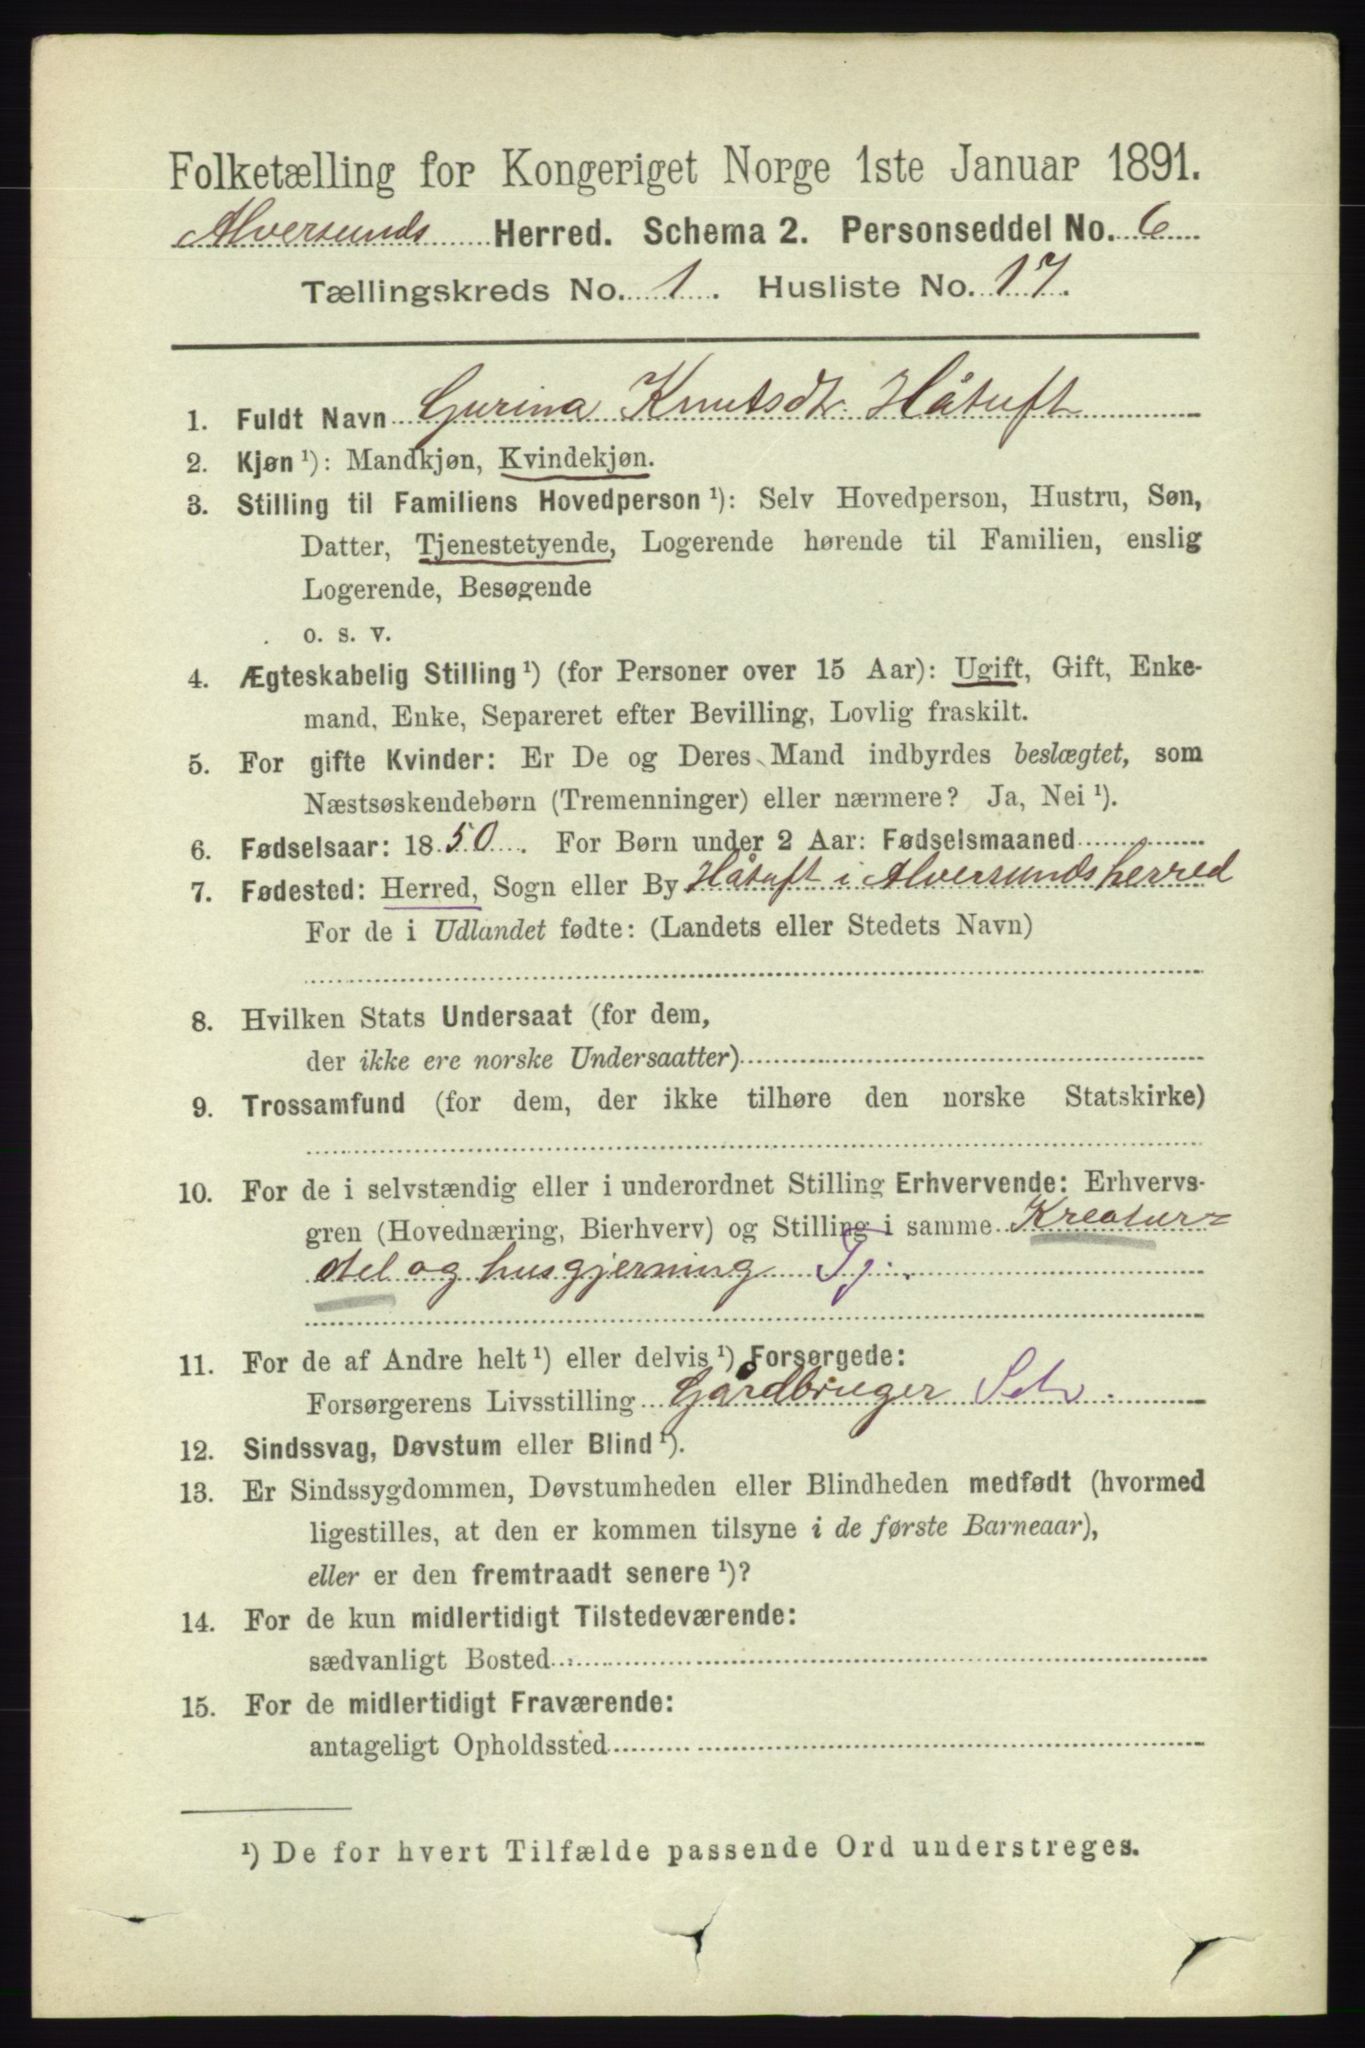 Folketælling for Kongeriget Norge 1ste Januar 1891.
Alversunds Herred. Schema 2. Personseddel No. 6
Tællingskreds No. 1. Husliste No. 17.
1. Fuldt Navn Gurina Knutsdt. Håtuft
2. Kjøn ¹): Mandkjøn, Kvindekjøn.
3. Stilling til Familiens Hovedperson ¹): Selv Hovedperson, Hustru, Søn,
Datter, Tjenestetyende, Logerende hørende til Familien, enslig
Logerende, Besøgende
o. s. v.
4. Ægteskabelig Stilling ¹) (for Personer over 15 Aar): Ugift, Gift, Enke-
mand, Enke, Separeret efter Bevilling, Lovlig fraskilt.
5. For gifte Kvinder: Er De og Deres Mand indbyrdes beslægtet, som
Næstsøskendebørn (Tremenninger) eller nærmere? Ja, Nei ¹).
6. Fødselsaar: 1850. For Børn under 2 Aar: Fødselsmaaned
7. Fødested: Herred, Sogn eller By Håtuft i Alversunds herred
For de i Udlandet fødte: (Landets eller Stedets Navn)
8. Hvilken Stats Undersaat (for dem,
der ikke ere norske Undersaatter)
9. Trossamfund (for dem, der ikke tilhøre den norske Statskirke)
10. For de i selvstændig eller i underordnet Stilling Erhvervende: Erhvervs-
gren (Hovednæring, Bierhverv) og Stilling i samme Kreatur-
stel og husgjerning Tj.
11. For de af Andre helt ¹) eller delvis ¹) Forsørgede:
Forsørgerens Livsstilling Gårdbruger
12. Sindssvag, Døvstum eller Blind ¹).
13. Er Sindssygdommen, Døvstumheden eller Blindheden medfødt (hvormed
ligestilles, at den er kommen tilsyne i de første Barneaar),
eller er den fremtraadt senere ¹)?
14. For de kun midlertidigt Tilstedeværende:
sædvanligt Bosted
15. For de midlertidigt Fraværende:
antageligt Opholdssted
¹) De for hvert Tilfælde passende Ord understreges.